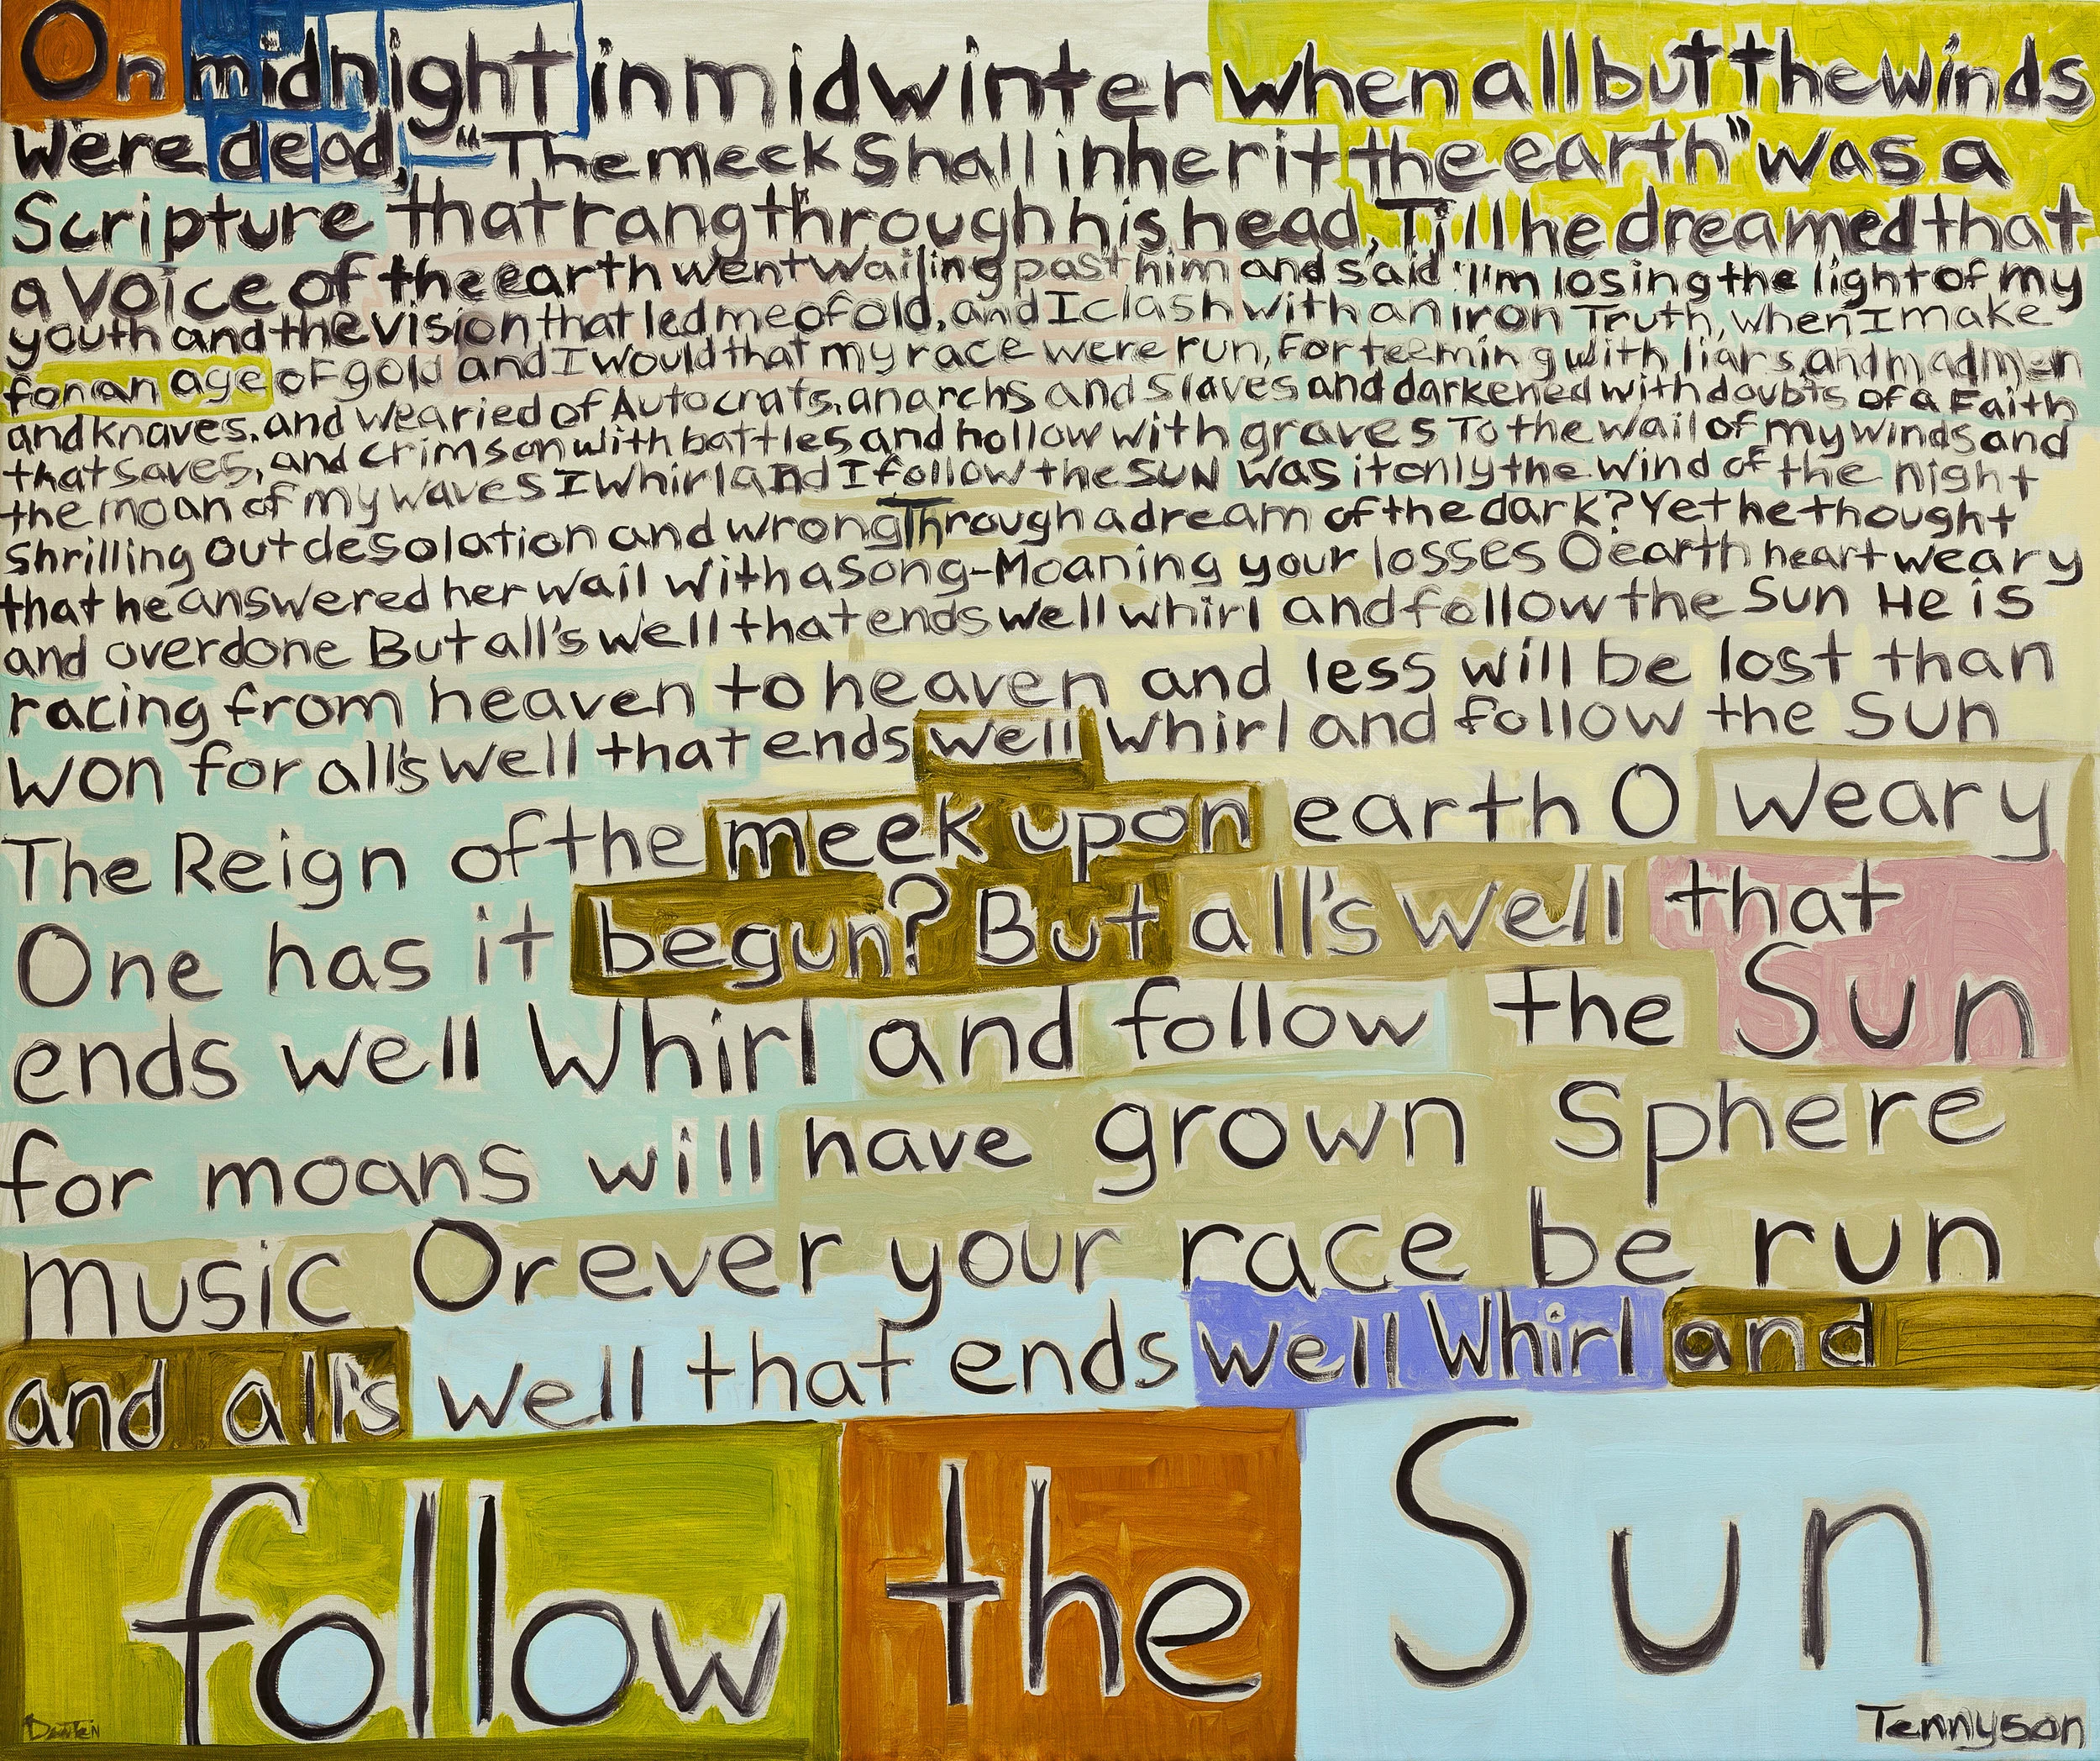 On midnight in midwinter when all but the winds
were dead, "The meek Shall inherit the earth" was a
Scripture that rang through his head, Till he dreamed that
a Voice of the earth went wailing past him and said 'I'm losing the light of my
youth and the vision that led me of old, and I clash with an iron Truth, when I make
for an age of gold and I would that my race were run, For teeming with liars, and madmen
and knaves, and wearied of Autocrats, anarchs and Slaves and darkened with doubts of a Faith
that saves, and crimson with battles and hollow with graves To the wail of my winds and
the moan of my waves I Whirl and I follow the SUN Was it only the Wind of the Night
Shrilling out desolation and wrong Through a dream of the dark? Yet he thought
that he answered her wail with a Song-Moaning your losses O earth heart weary
and overdone But all's well that ends well whirl and follow the Sun He is
racing from heaven to heaven and less will be lost than
won for all's well that ends well Whirl and follow the Sun
The Reign of the meek upon earth O weary
One has it begun? But all's well that
ends well Whirl and follow the Sun
for moans will have grown Sphere
music Orever your race be run
and all's well that ends well Whirl and
follow the Sun
Tennyson